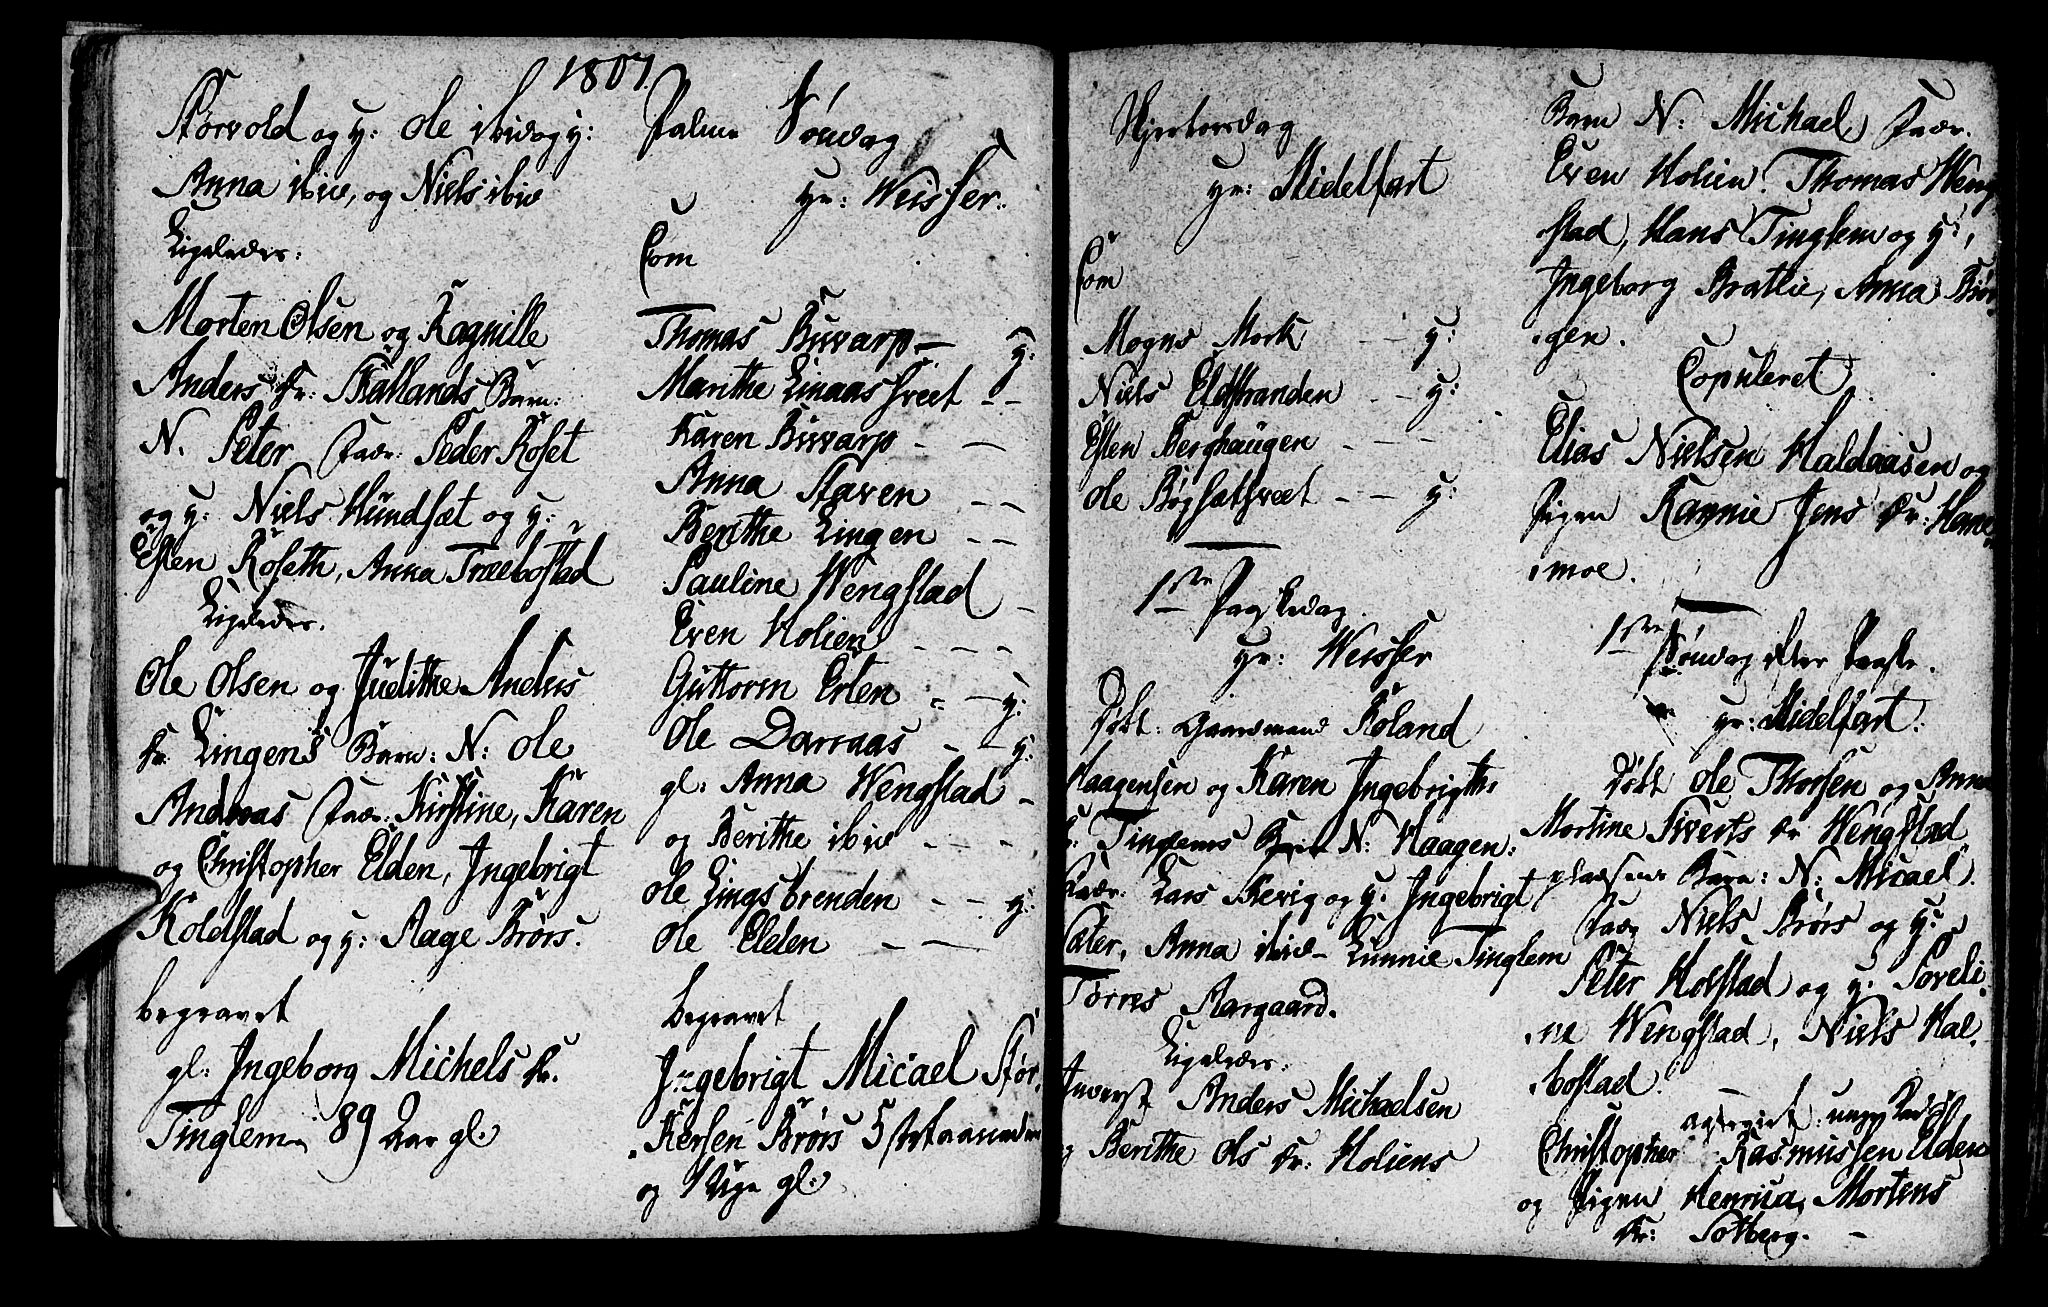 1807.
Størvold og y: Ole ibid og y:
Anna ibid, og Niels ibid
Ligeledes:
Morten Olsen og Ragnille
Anders Dr: Skillands Barn:
N. Peter Fadr: Peder Roset
og y: Niels Hundsæt og y:
Esten Roseth, Anna Træebostad
Ligeledes.
Ole Olsen og Judithe Anders
Dr: Lingens Barn: N: Ole
Andreas Fadr: Kirstine, Karen
og Christopher Elden, Ingebrigt
Koldstad og y: Aage Brørs.
begravet
gl: Ingeborg Michels Dr.
Tinglem 89 Aar gl.
Palme Søndag
hr: Weisser.
Com
Thomas Buvarp — y:
Marithe Linaas hveet - -
Karen Buvarp - —
Anna Staven - -
Berithe Lingen - -
Pauline Wengstad -
Even Holien - - -
Guttorm Erten - - y:
Ole Darraas - - y:
gl: Anna Wengstad -
og Berithe ibid - - -
Ole Lingsbrenden - - y:
Ole Elden - -
Begravet
Ingebrigt Micael Stør-
kersen Brørs 5
og 1 Uge gl.
Skjertorsdag
hr: Midelfart
Com
Mogns Mork - - y:
Niels Eldstranden - - y:
Esten Berghaugen - - -
Ole Bøgsæthveet - - y:
1ste Paaskedag.
hr: Weisser
Døbt: Gaardmand Roland
Haagensen og Karen Ingebrigths
Dr: Tinglems Barn N: Haagen:
Fadr: Lars Skevig og y: Ingebrigt
Sater, Anna ibid - Lunnie Tinglem
Tørres Aargaard.
Ligeledes:
Inderst Anders Michaelsen
og Berithe Ols Dr: Holiens
Barn N: Michael, Fadr.
Even Holien. Thomas Weng-
stad, Hans Tinglem og y:
Ingeborg Bratlie, Anna Bør-
gen.
Copuleret
Elias Nielsen Haldaasen og
Pigen Rannie Jens Dr: Hane-
moe.
1ste Søndag efter Paaske.
hr: Midelfart:
Døbt Ole Thorsen og Anna
Mortine Siverts Dr Wengstad
pladsens Barn: N: Micael.
Fadr Niels Brørs og y:
Peter Holstad og y: Soveli-
ne Wengstad, Niels Hal-
bostad.
ungk
Christopher Rasmussen Elden
og Pigen Henrica Mortens
Dr: Solberg. —